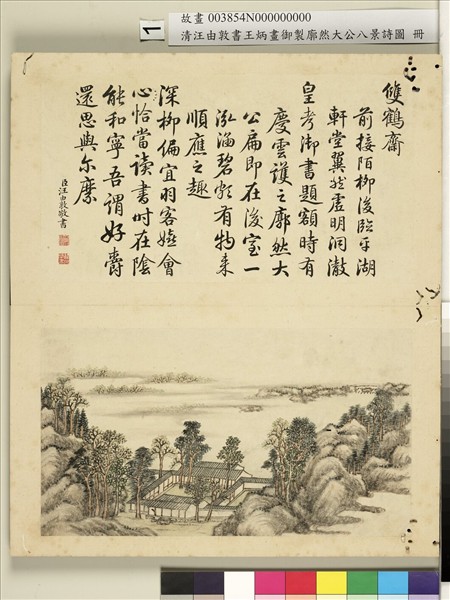 1
故畫 003854N000000000
清汪由敦書王炳畫御製廓然大公八景詩圖 冊
雙鶴齋
前接陌柳後臨平湖
軒堂翼然虛明洞澈
皇考御書題額時有
慶雲護之廓然大
公扁即在後室一
泓涵碧頗有物来
順應之趣
深柳偏宜羽客嬉會
心恰當讀書時在陰
能和寧吾謂好爵
還思與尔縻
臣汪由敦敬書